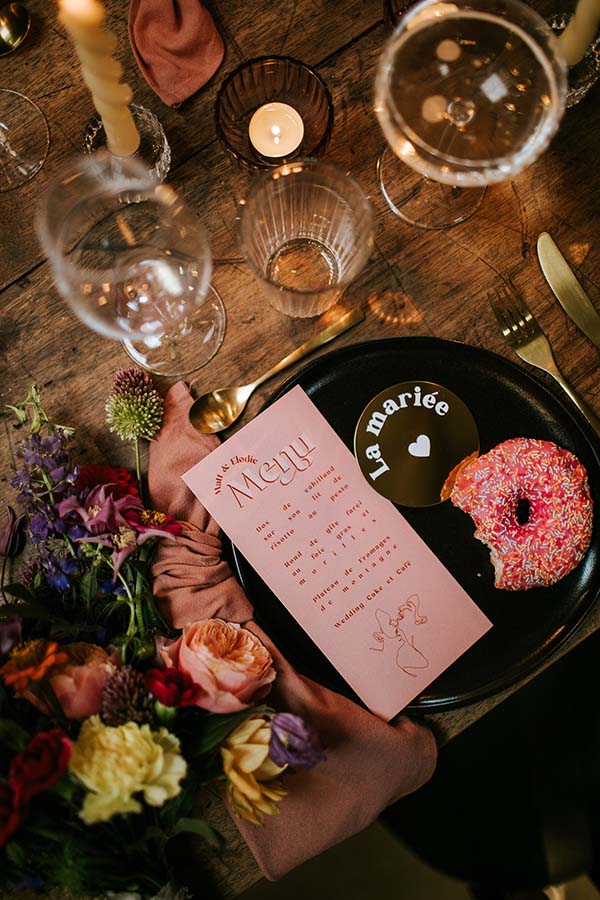 Matt & Elodie
Menu
Dos de cabillaud
sur son lit de
risotto au pesto
Rond de gîte farci
au foie gras et
morilles
Plateau de fromages
de montagne
Wedding Cake et Café
La mariée